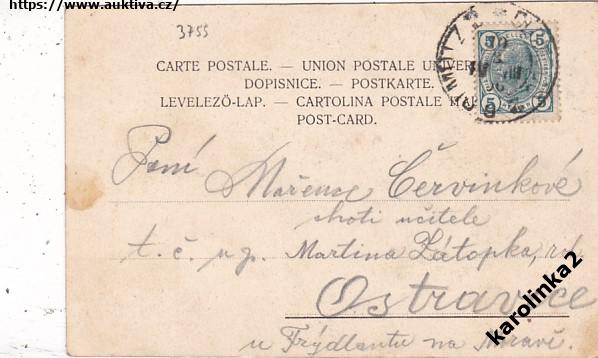 https://www.auktiva.cz/
3755
CARTE POSTALE. — UNION POSTALE UNIVER
DOPISNICE. — POSTKARTE.
LEVELEZŐ-LAP. — CARTOLINA POSTALE
POST-CARD.
5 5
5 5
Paní
Mařence Červinkové
choti učitele
t. č. u p. Martina Zátopka,
Ostravice
u Frýdlantu na Moravě.
karolinka2